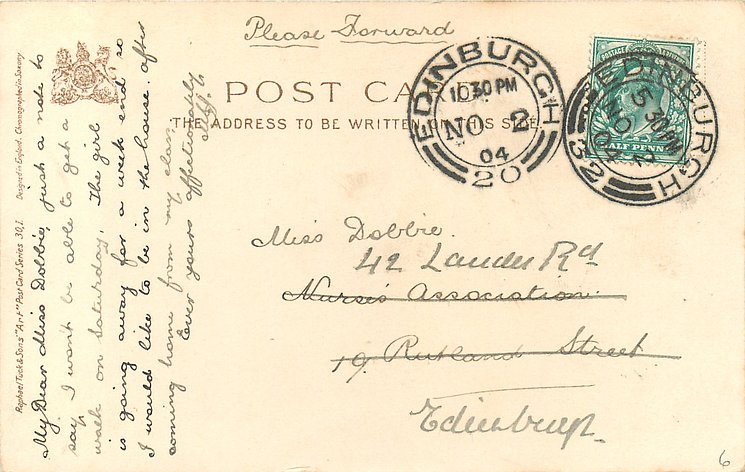 Please Forward
POST CA
THE ADDRESS TO BE WRITTEN ON THIS SIDE
EDINBURGH
10 30 PM
NO 2
04
20
EDINBURGH
5 30 PM
NO 2
04
32
POSTAGE
HALF PENNY
Miss Dobbie.
42 Lauder Rd
Nurses Association
19 Rutland Street
Edinburgh
Raphael Tuck & Sons' "Art" Post Card Series 30,1.
Designed in England. Chromographed in Saxony.
My Dear Miss Dobbie, just a note to
say I wont be able to get a
walk on Saturday. The girl
is going away for a week end so
I would like to be in the house after
coming home from my class.
Ever yours affectionately
6